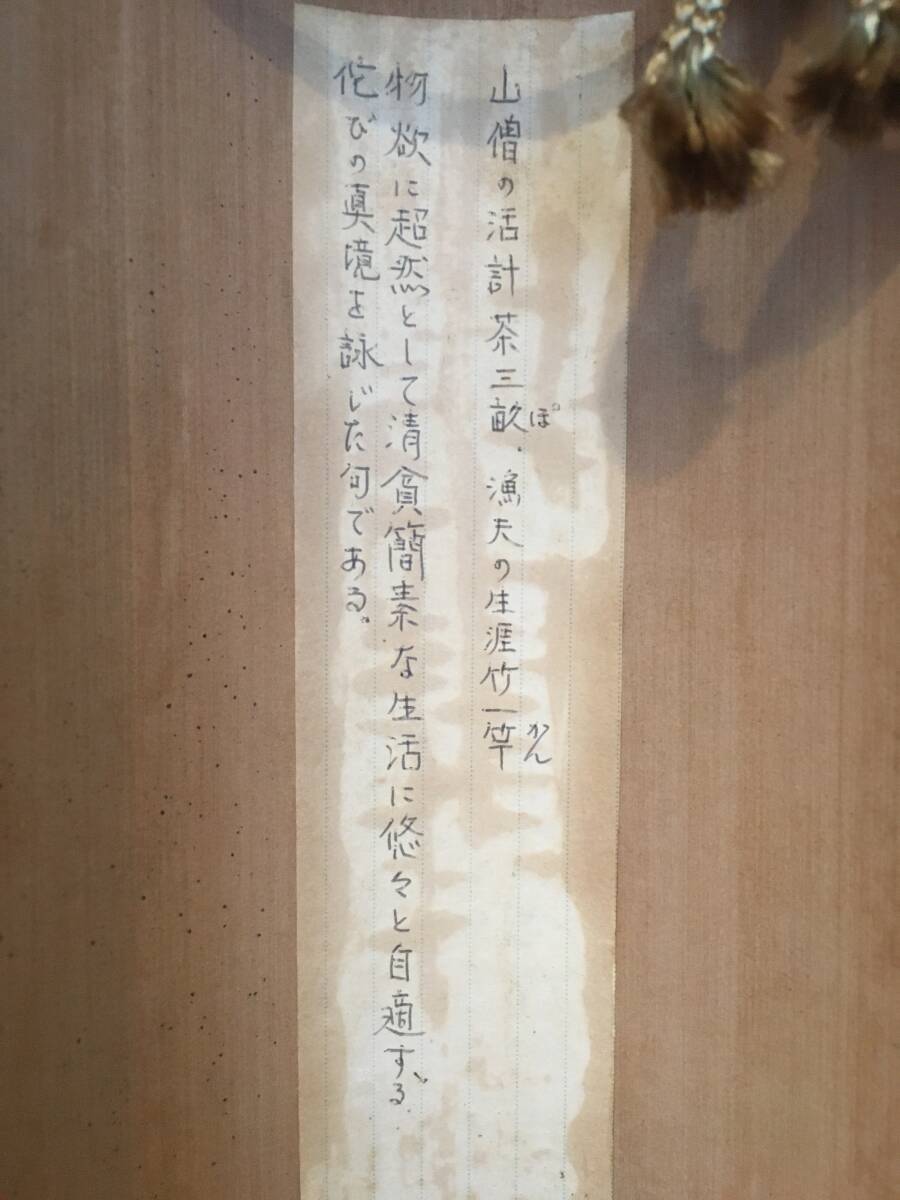 山僧の活計茶三畝、漁夫の生涯竹一竿
ぽ
かん
物欲に超然として清貧簡素な生活に悠々と自適する
侘びの真境を詠じた句である。